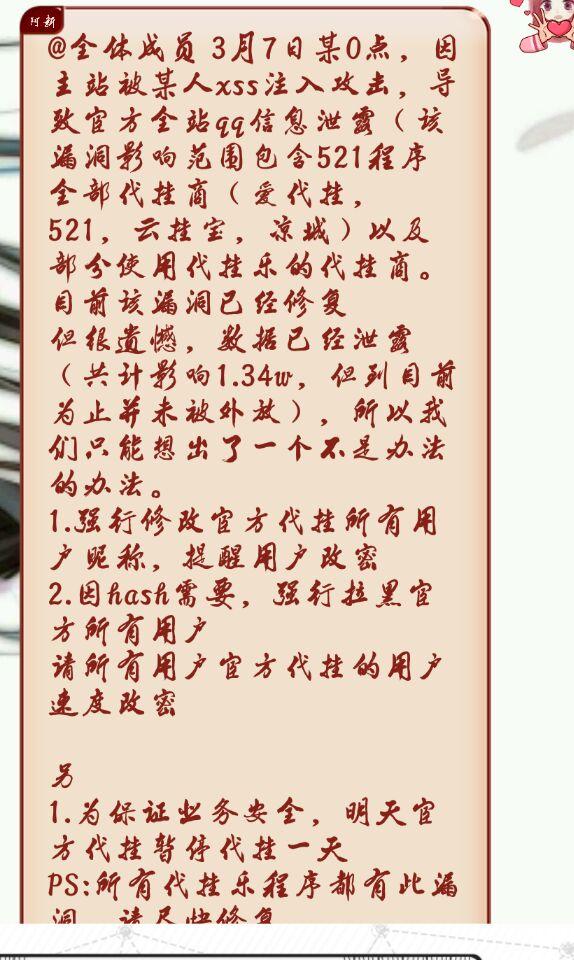 阿新
@全体成员 3月7日某0点，因
主站被某人xss注入攻击，导
致官方全站qq信息泄露（该
漏洞影响范围包含521程序
全部代挂商（爱代挂，
521，云挂宝，凉城）以及
部分使用代挂乐的代挂商。
目前该漏洞已经修复
但很遗憾，数据已经泄露
（共计影响1.34w，但到目前
为止并未被外放），所以我
们只能想出了一个不是办法
的办法。
1.强行修改官方代挂所有用
户昵称，提醒用户改密
2.因hash需要，强行拉黑官
方所有用户
请所有用户官方代挂的用户
速度改密
另
1.为保证业务安全，明天官
方代挂暂停代挂一天
PS:所有代挂乐程序都有此漏
洞，请尽快修复